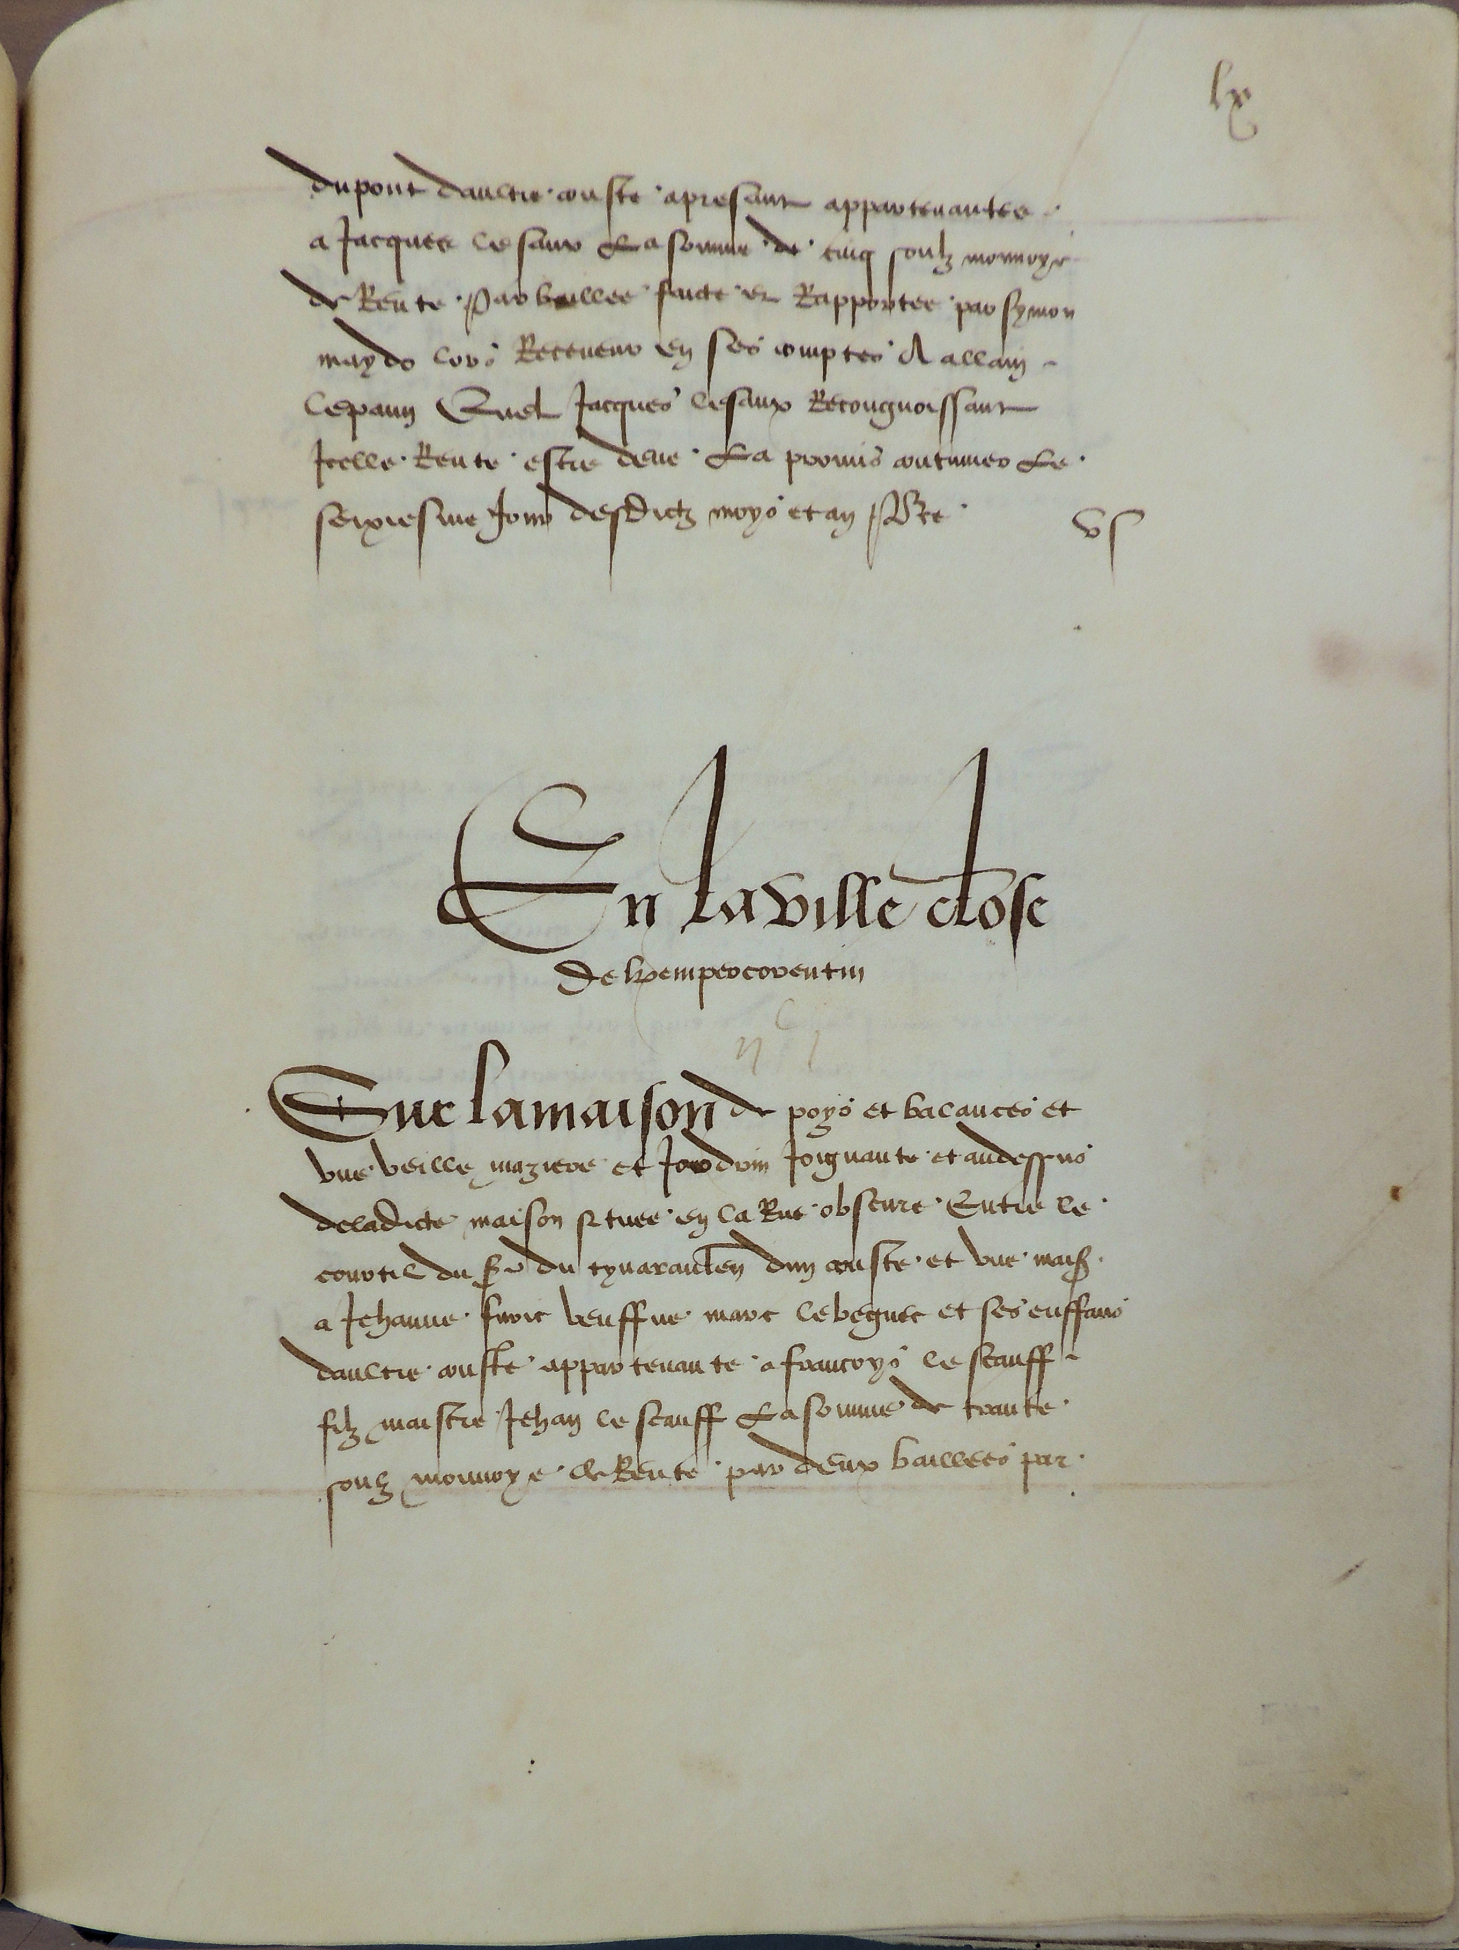 lx
dupont daultre couste apresant appartenantes
a Jacques lesaux La somme de cinq soulz monnoye
de Rente Par baillee faicte et Rapportee par symon
maydo lors Receveur en ses comptes A allain
lepann Quel Jacques lesaux Recongnoissant
Jcelle Rente estre deue La promis continuer Le
seixiesme Jour desdictz moys et an
vs
En la ville close
de kempercorentin
Sur la maison de poys et balances et
vne veille maziere et Jardrin Joignante et audessus
deladicte maison situee en la Rue obscure Entre le
courtil du sr du tynarantlen dun couste et vne mais
a Jehanne furic veuffue marc lebeguec et ses enffans
daultre couste appartenante a francoys le scauff
filz maistre Jehan le scauff La somme de trante
soulz monnoye de Rente par deux baillees par